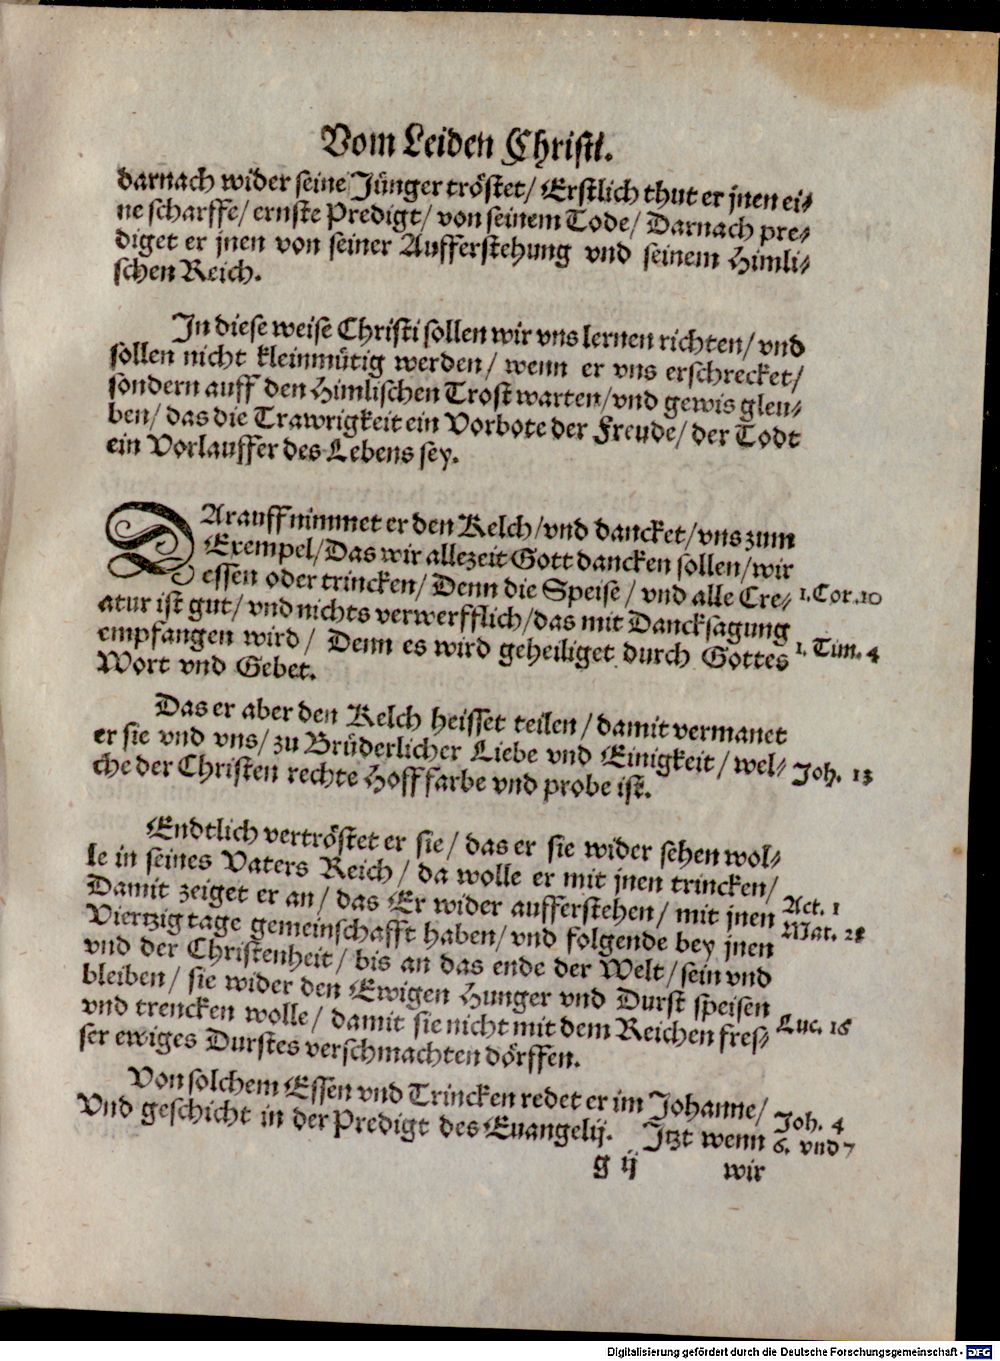 Vom Leiden Christi.
darnach wider seine Jünger tröstet/ Erstlich thut er jnen ei⸗
ne scharffe/ ernste Predigt/ von seinem Tode/ Darnach pre⸗
diget er jnen von seiner Aufferstehung vnd seinem Himli⸗
schen Reich.
In diese weise Christi sollen wir vns lernen richten/ vnd
sollen nicht kleinmütig werden/ wenn er vns erschrecket/
sondern auff den Himlischen Trost warten/ vnd gewis gleu⸗
ben/ das die Trawrigkeit ein Vorbote der Freude/ der Todt
ein Vorlauffer des Lebens sey.
DArauff nimmet er den Kelch/ vnd dancket/ vns zum
Exempel/ Das wir allezeit Gott dancken sollen/ wir
essen oder trincken/ Denn die Speise/ vnd alle Cre⸗ 1. Cor. 10
atur ist gut/ vnd nichts verwerfflich/ das mit Dancksagung
empfangen wird/ Denn es wird geheiliget durch Gottes 1. Tim. 4
Wort vnd Gebet.
Das er aber den Kelch heisset teilen/ damit vermanet
er sie vnd vns/ zu Brüderlicher Liebe vnd Einigkeit/ wel⸗ Joh. 13
che der Christen rechte Hofffarbe vnd probe ist.
Endtlich vertröstet er sie/ das er sie wider sehen wol⸗
le in seines Vaters Reich/ da wolle er mit jnen trincken/
Damit zeiget er an/ das Er wider aufferstehen/ mit jnen Act. 1
Viertzig tage gemeinschafft haben/ vnd folgende bey jnen Mat. 28
vnd der Christenheit/ bis an das ende der Welt/ sein vnd
bleiben/ sie wider den Ewigen Hunger vnd Durst speisen
vnd trencken wolle/ damit sie nicht mit dem Reichen fres⸗ Luc. 16
ser ewiges Durstes verschmachten dörffen.
Von solchem Essen vnd Trincken redet er im Johanne/ Joh. 4
Vnd geschicht in der Predigt des Euangelij. Jtzt wenn 6. vnd 7
g ij wir
Digitalisierung gefördert durch die Deutsche Forschungsgemeinschaft - DFG